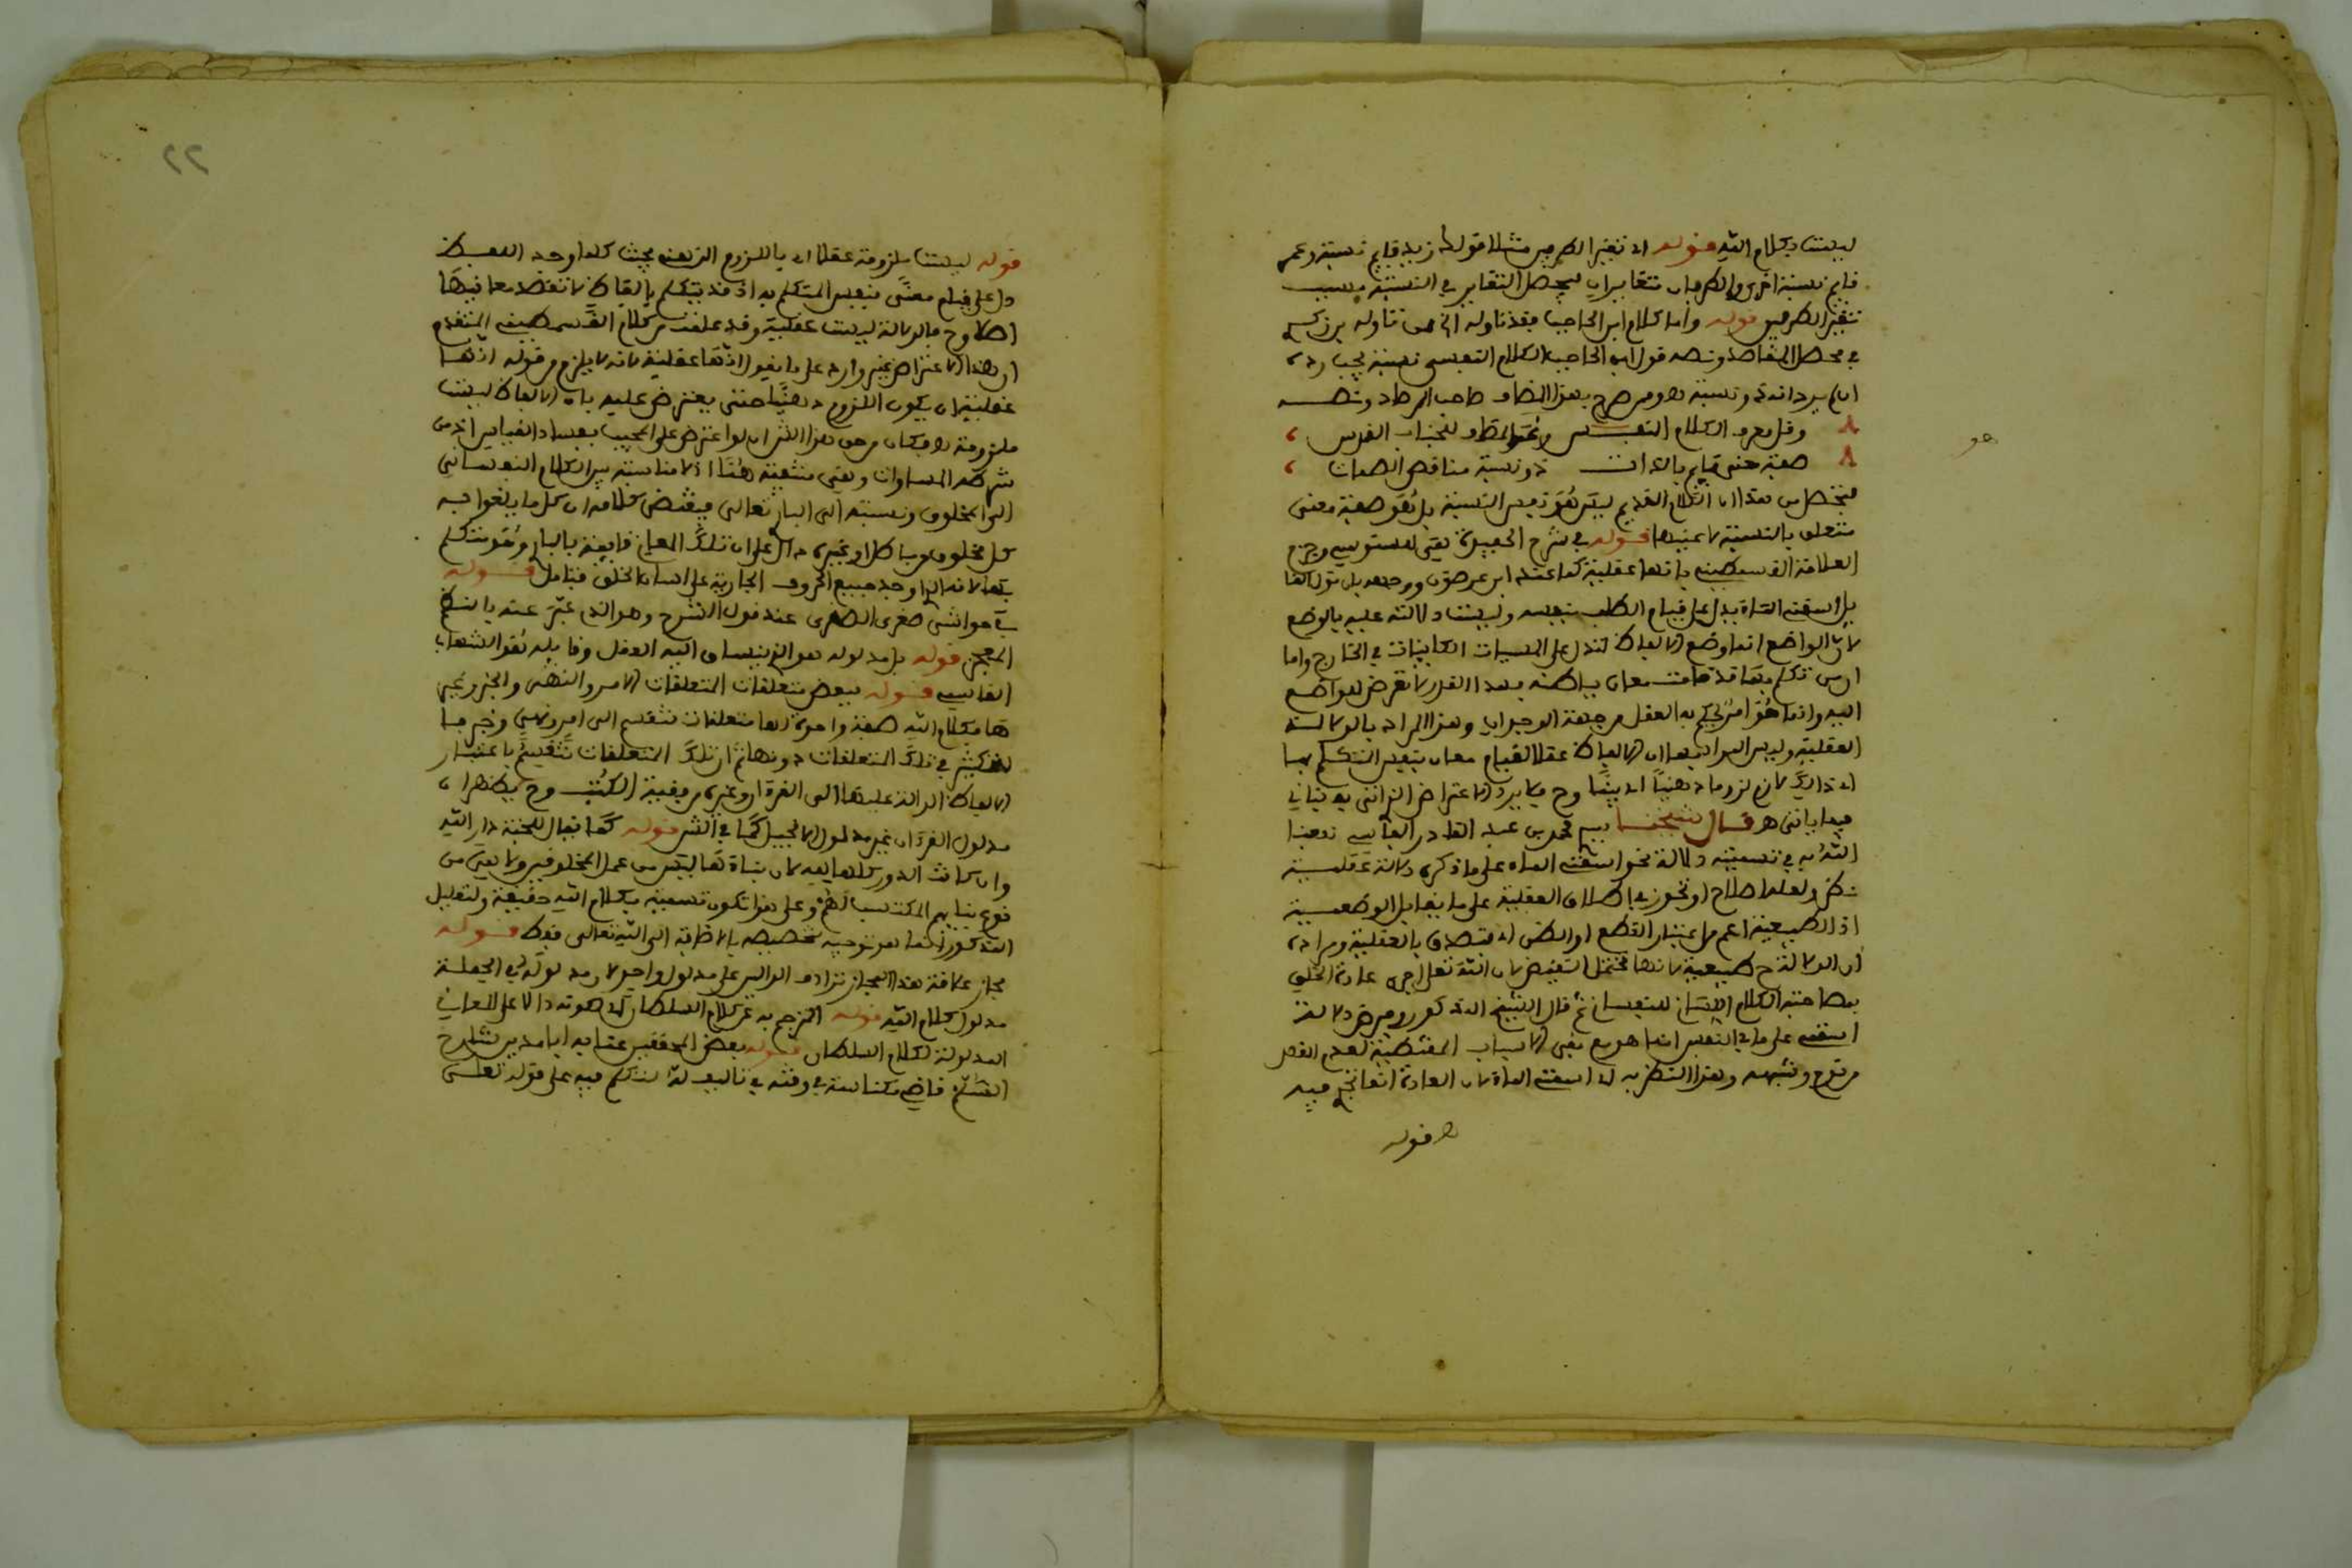 ليست بكلام الله قوله اي تغير الطرفين مثلا قولك زيد قايم نسبة وعمر
قايم نسبة اخرى والطرفان متغايران فيحصل التغاير في النسبة بسبب
تغير الطرفين قوله واما كلام ابن الحاجب فقد تاوله الخ ممن تاوله بن زكري
في محصل المقاصد ونصه قول ابن الحاجب الكلام النفسي نسبة يجب رده
ان لم يرد انه ذو نسبة وممن صرح بهذا المضاف صاحب المراصد ونصه
وقل معرف الكلام النفسي ونحو المطلو للجناب القدس
صفة معنى قايم بالذات ذو نسبة مناقض الصمات
فتحصل من هذا ان الكلام القديم ليس هو نفس النسبة بل هو صفة معنى
متعلق بالنسبة لا عينها قوله في شرح الحفيدة يعني للسنوسي وجزم
العلامة القسمطيني بانها عقلية كما عند ابن عرفة ووجهه بان قولك
بل اسقني الماء يدل على قيام الطلب بنفسه وليست دلالته عليه بالوضع
لان الواضع انما وضع الالفاظ لتدل على المسميات الكاينات في الخارج واما
ان من تكلم بها قد قامت معان بباطنه بهذا القدر لا تعرض للواضع
اليه وانما هو امر يحكم به العقل من جهة الوجدان وهذا المراد بالدلالة
العقلية وليس المراد بها ان الالفاظ عقلا لقيام معان بنفس المتكلم بها
اي ذلك لازم لزوما ذهنيا اي بينا وح فلا يرد الاعتراض الذاتي به بناني
فيما ياتي هـ قال شيخنا سيدي محمد بن عبد القادر الفاسي نفعنا
الله به في تسمية دلالة نحو اسقني الماء على ما ذكره دلالة عقلية
نظر ولعله اصطلاح او تجوز في اطلاق العقلية على ما يقابل الوضعية
اذ الطبيعية اعم من اعتبار القطع او الظن اي تصدق بالعقلية ومراده
ان الدلالة ح طبيعية لانها تحتمل النقيض لان الله تعالى اجرى عادة الخلق
بمصاحبة الكلام اللساني للنفساني ثم قال الشيخ المذكور وفرض دلالة
اسقني على ما في النفس انما هو مع نفي الاسباب المقتضية لعدم القصد
من نوم وشبهه وهذا النظر به اي اسقني الماء لان العادة انما تجري فيه
قوله
٢٢
قوله ليست ملزومة عقلا اي باللزوم الذهني بحيث كلما وجد اللفظ
دل على قيام معنى بنفس المتكلم به اذ قد يتكلم بالفاظ لا تقصد معانيها
اصلا وح فالدلالة ليست عقلية وقد علمت من كلام القسمطيني المتقدم
ان هذا الاعتراض غير وارد على ما يقول انها عقلية لانه لا يلزم من قوله انها
عقلية ان يكون اللزوم ذهنيا حتى يعترض عليه بان الالفاظ ليست
ملزومة فكان من حق هذا الشران لو اعترض على المجيب بفساد القياس اذ من
شرطه المساوات وهي منتفية هنا اذ لا مناسبة بين الكلام النفساني
الى المخلوق ونسبته الى الباري تعالى فيقتضي كلامه ان كل ما يلغوا به
كل مخلوق من باطل او غيره دال على ان تلك المعاني قايمة بالباري وهو متكلم
بها لانه الذي اوجد جميع الحروف الجارية على السنة الخلق فتامل قوله
في حواشي صغرى الصغرى عند قول الشرح وهو الذي عبر عنه بالنظم
المعجز قوله بل مدلوله هو الذي ينساق اليه العقل وقايله هو الشهاب
القاسمي قوله ببعض متعلقات المتعلقات الامر والنهي والخبر وغير
ها فكلام الله صفة واحدة لها متعلقات تنقسم الى امر ونهي وخبر فما
لتكثير في تلك المتعلقات دونها ثم ان تلك المتعلقات تنقسم باعتبار
الالفاظ الدالة عليها الى القرءان وغيره من بقية الكتب وح يظهر ان
مدلول القرءان غير مدلول الانجيل كما في الشر قوله كما يقال للجنة دار الله
وان كانت الدور كلها لله لان بناءها ليس من عمل المخلوقين ولا يعين من
نوع بنايهم المكتسب لهم وعلى هذا تكون تسميته بكلام الله حقيقة ولتعليل
المذكور انما هو توجيه تخصيصه بالاضافة الى الله تعالى فقط قوله
مجاز علاقة هذا المجاز ترادف الدالين على مدلول واحد لان مدلوله في الجملة
مدلول كلام الله قوله المترجم به عن كلام السلطان اي صوته دالا على المعاني
المدلولة لكلام السلطان قوله بعض المحققين عنا به ابا مدين شارح
السلم قاضي مكناسة في وقته في تاليف له تكلم فيه على قوله تعالى